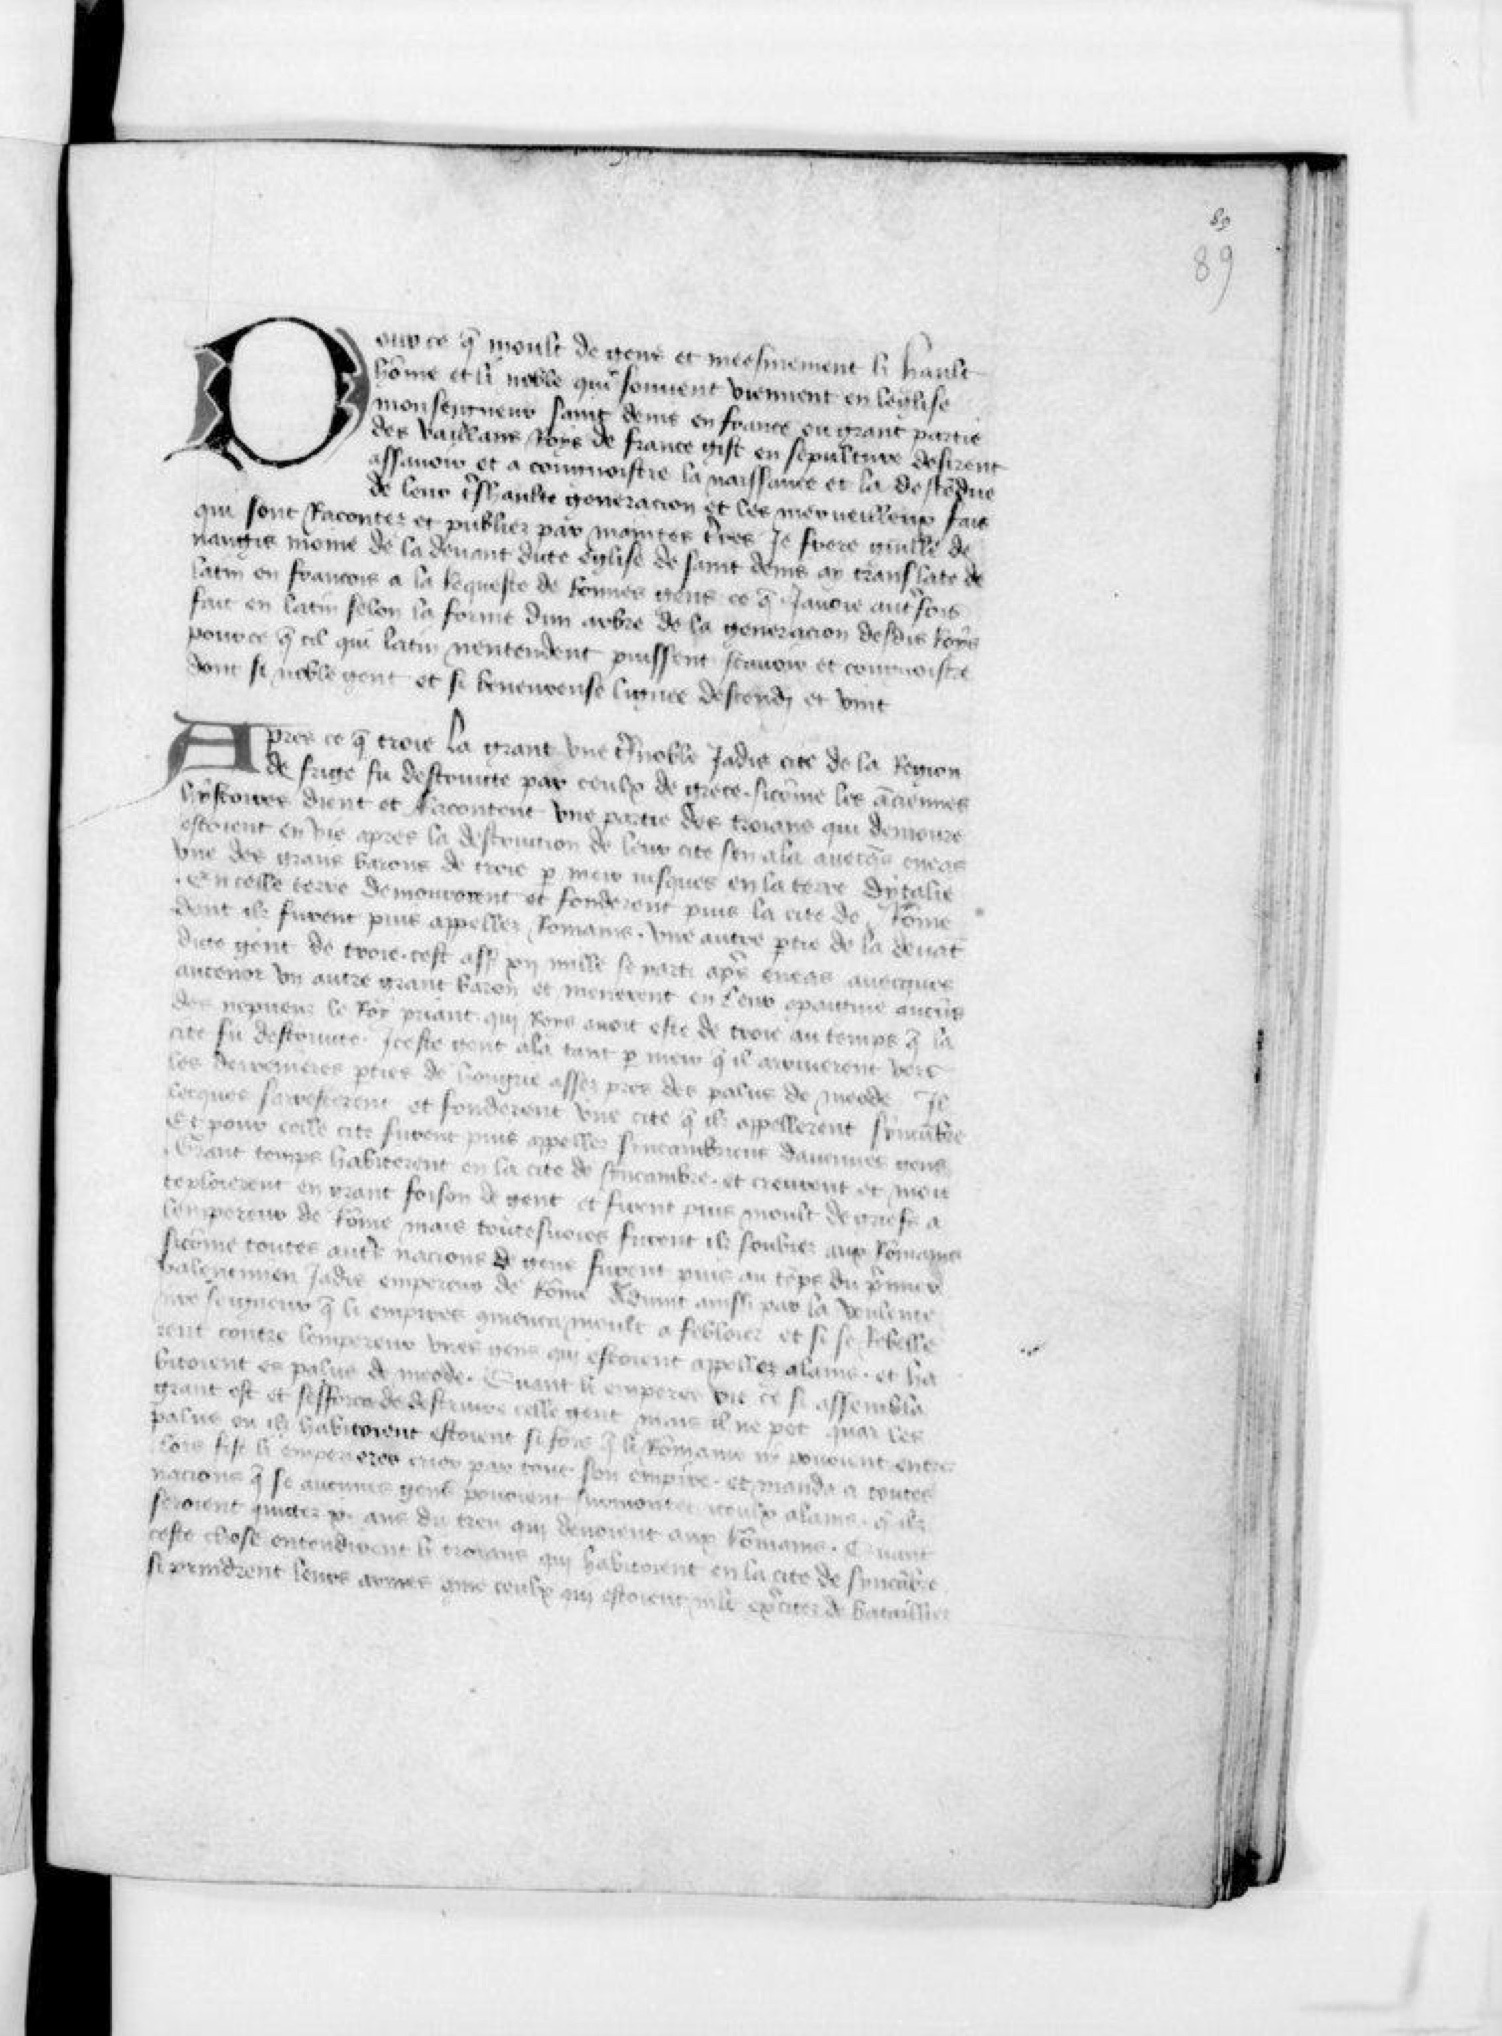 89
89
Pour ce q̃ moult de gens et meesmement li hault
hõme et li noble qui souuent viennent en leglise
monseigneur saint denis en france ou grant partie
des vaillans Roys de france gist en sepulture desirent
assauoir et a congnoistre la naissance et la descẽdue
de leur tr̃shaulte generacion et les merueilleux fais
qui sont Racontez et publiez par maintes t̃res Je frere guille de
nangis moine de la deuant dicte eglise de saint denis ay translate de
latin en francois a la Requeste de bonnes gens ce q̃ Jauoie autr̃fois
fait en latin selon la forme dun arbre de la generacion desdis Roys
pource q̃ cil qui latin nentendent puissent sauoir et congnoistre
dont si noble gent et si beneureuse lignee descendi et vint
Apres ce q̃ troie La grant vne tr̃snoble Jadis cite de la Region
de frige fu destruicte par ceulx de grece. sicõme les ãciennes
hystoires dient et Racontent vne partie des troians qui demoure
estoient en vie apres la destruction de leur cite sen ala auecq̃s eneas
vns des grans barons de troie p mer iusques en la terre dytalie
. En celle terre demourerent et fonderent puis la cite de Rõme
dont ilz furent puis appellez Romains. vne autre ptie de la deuãt
dicte gent de troie. cest ass̃ xij mille se parti apr̃s eneas auecques
antenor vn autre grant baron et menerent en Leur compaignie aucũs
des nepueux le Roy priant. qui Roys auoit este de troie au temps q̃ la
cite fu destruicte. Jceste gent ala tant p mer q̃ il arriuerent vers
les derrenieres pties de hongrie assez pres des palus de meode Jl
lecques sarresterent et fonderent vne cite q̃ ilz appellerent syncãbre
Et pour celle cite furent puis appellez syncambriens dauennes gens
. Grant temps habiterent en la cite de syncambre. et creurent et mou
teploierent en grant foison de gent et furent puis moult de griefs a
lempereur de Rõme mais toutesuoies furent ilz soubiez aux Rõmains
sicõme toutes autr̃s nacions de gens furent puis au tẽps du p̃mier
valentinien Jadis empereur de Rõme Aduint ainssi par la voulente
nr̃e seigneur q̃ li empires cõmenca moult a febloier et si se Rebelle
rent contre lempereur vnes gens qui estoient appellez alains. et ha
bitoient es palus de meode. Quant li emperer vit ce si assembla
grant ost et sefforca de destruire celle gent mais il ne pot quar les
palus ou ilz habitoient estoient si fors q̃ li Rõmains ny pouoient entrer
Lors fist li empereres crier par tout son empire. et manda a toutes
nacions q̃ se aucunes gens pouoient surmonter iceulx alains. q̃ ilz
seroient quittez x. ans du treu qui deuoient aux Rõmains. Quant
ceste chose entendirent li troians qui habitoient en la cite de syncãbre
si prindrent leurs armes cõme ceulx qui estoient mlt̃ exc̃itez de bataillier